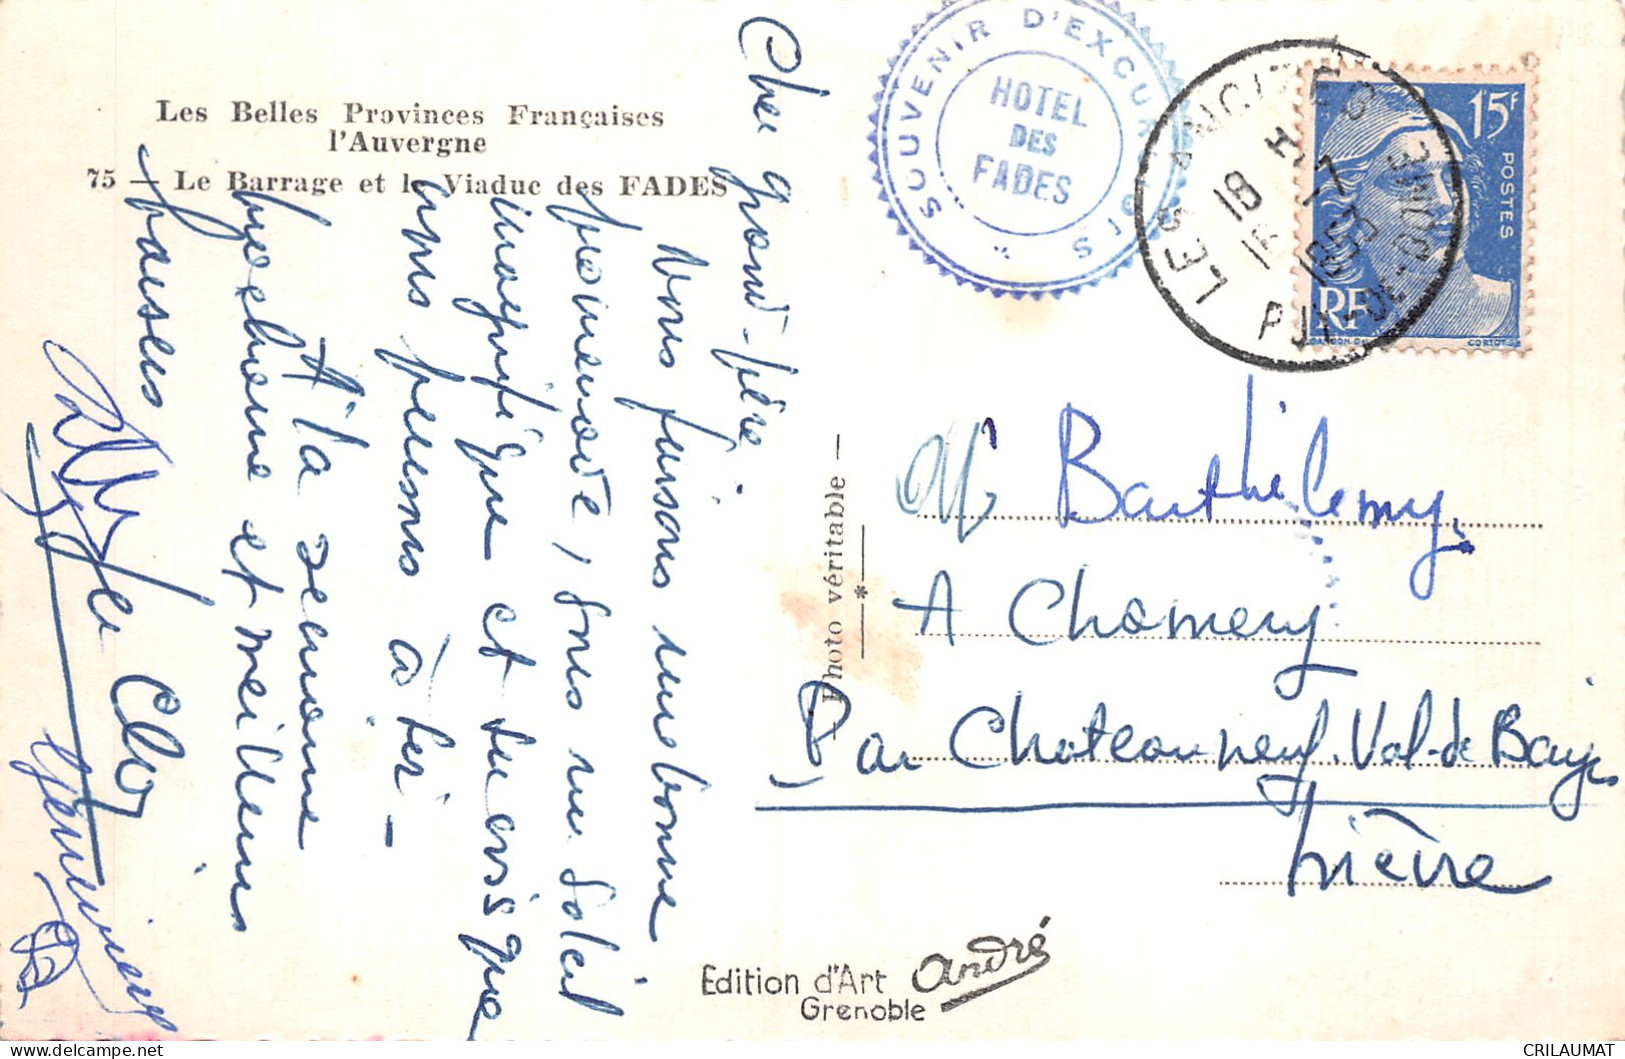 Les Belles Provinces Françaises
l'Auvergne
75 — Le Barrage et le Viaduc des FADES
Cher grand-père.
Nous faisons une bonne
promenade, sous un soleil
magnifique et tu crois que
nous pensons à toi -
A la semaine
prochaine et meilleurs
baisers
Geneviève
SOUVENIR D'EXCURSIONS
HOTEL
DES
FADES
LES ANCIZES
18 H
16 -7
1953
PUY-DE-DOME
15F
POSTES
RF
Photo véritable —
*
Mr Barthélemy
A Chomery
Par Chateauneuf-Val-de Bargis
Nièvre
Edition d'Art André
Grenoble
CRILAUMAT